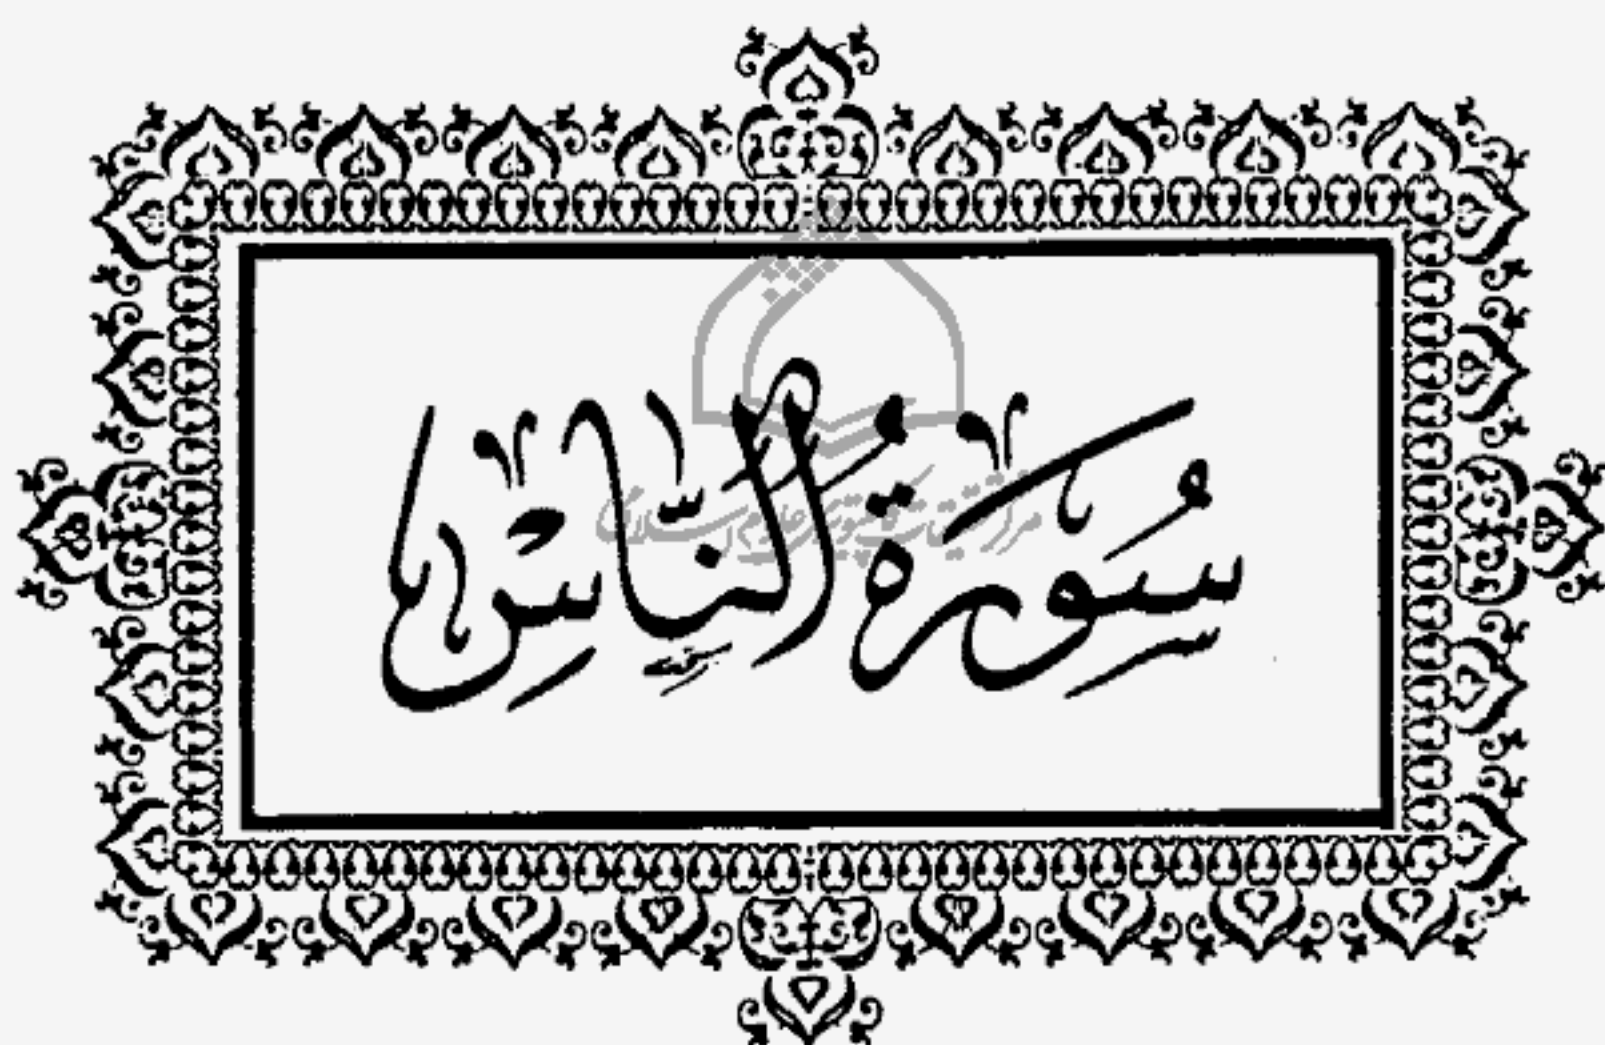 سُورَةُ النَّاسِ
مرکز تحقیقات کامپیوتری علوم اسلامی